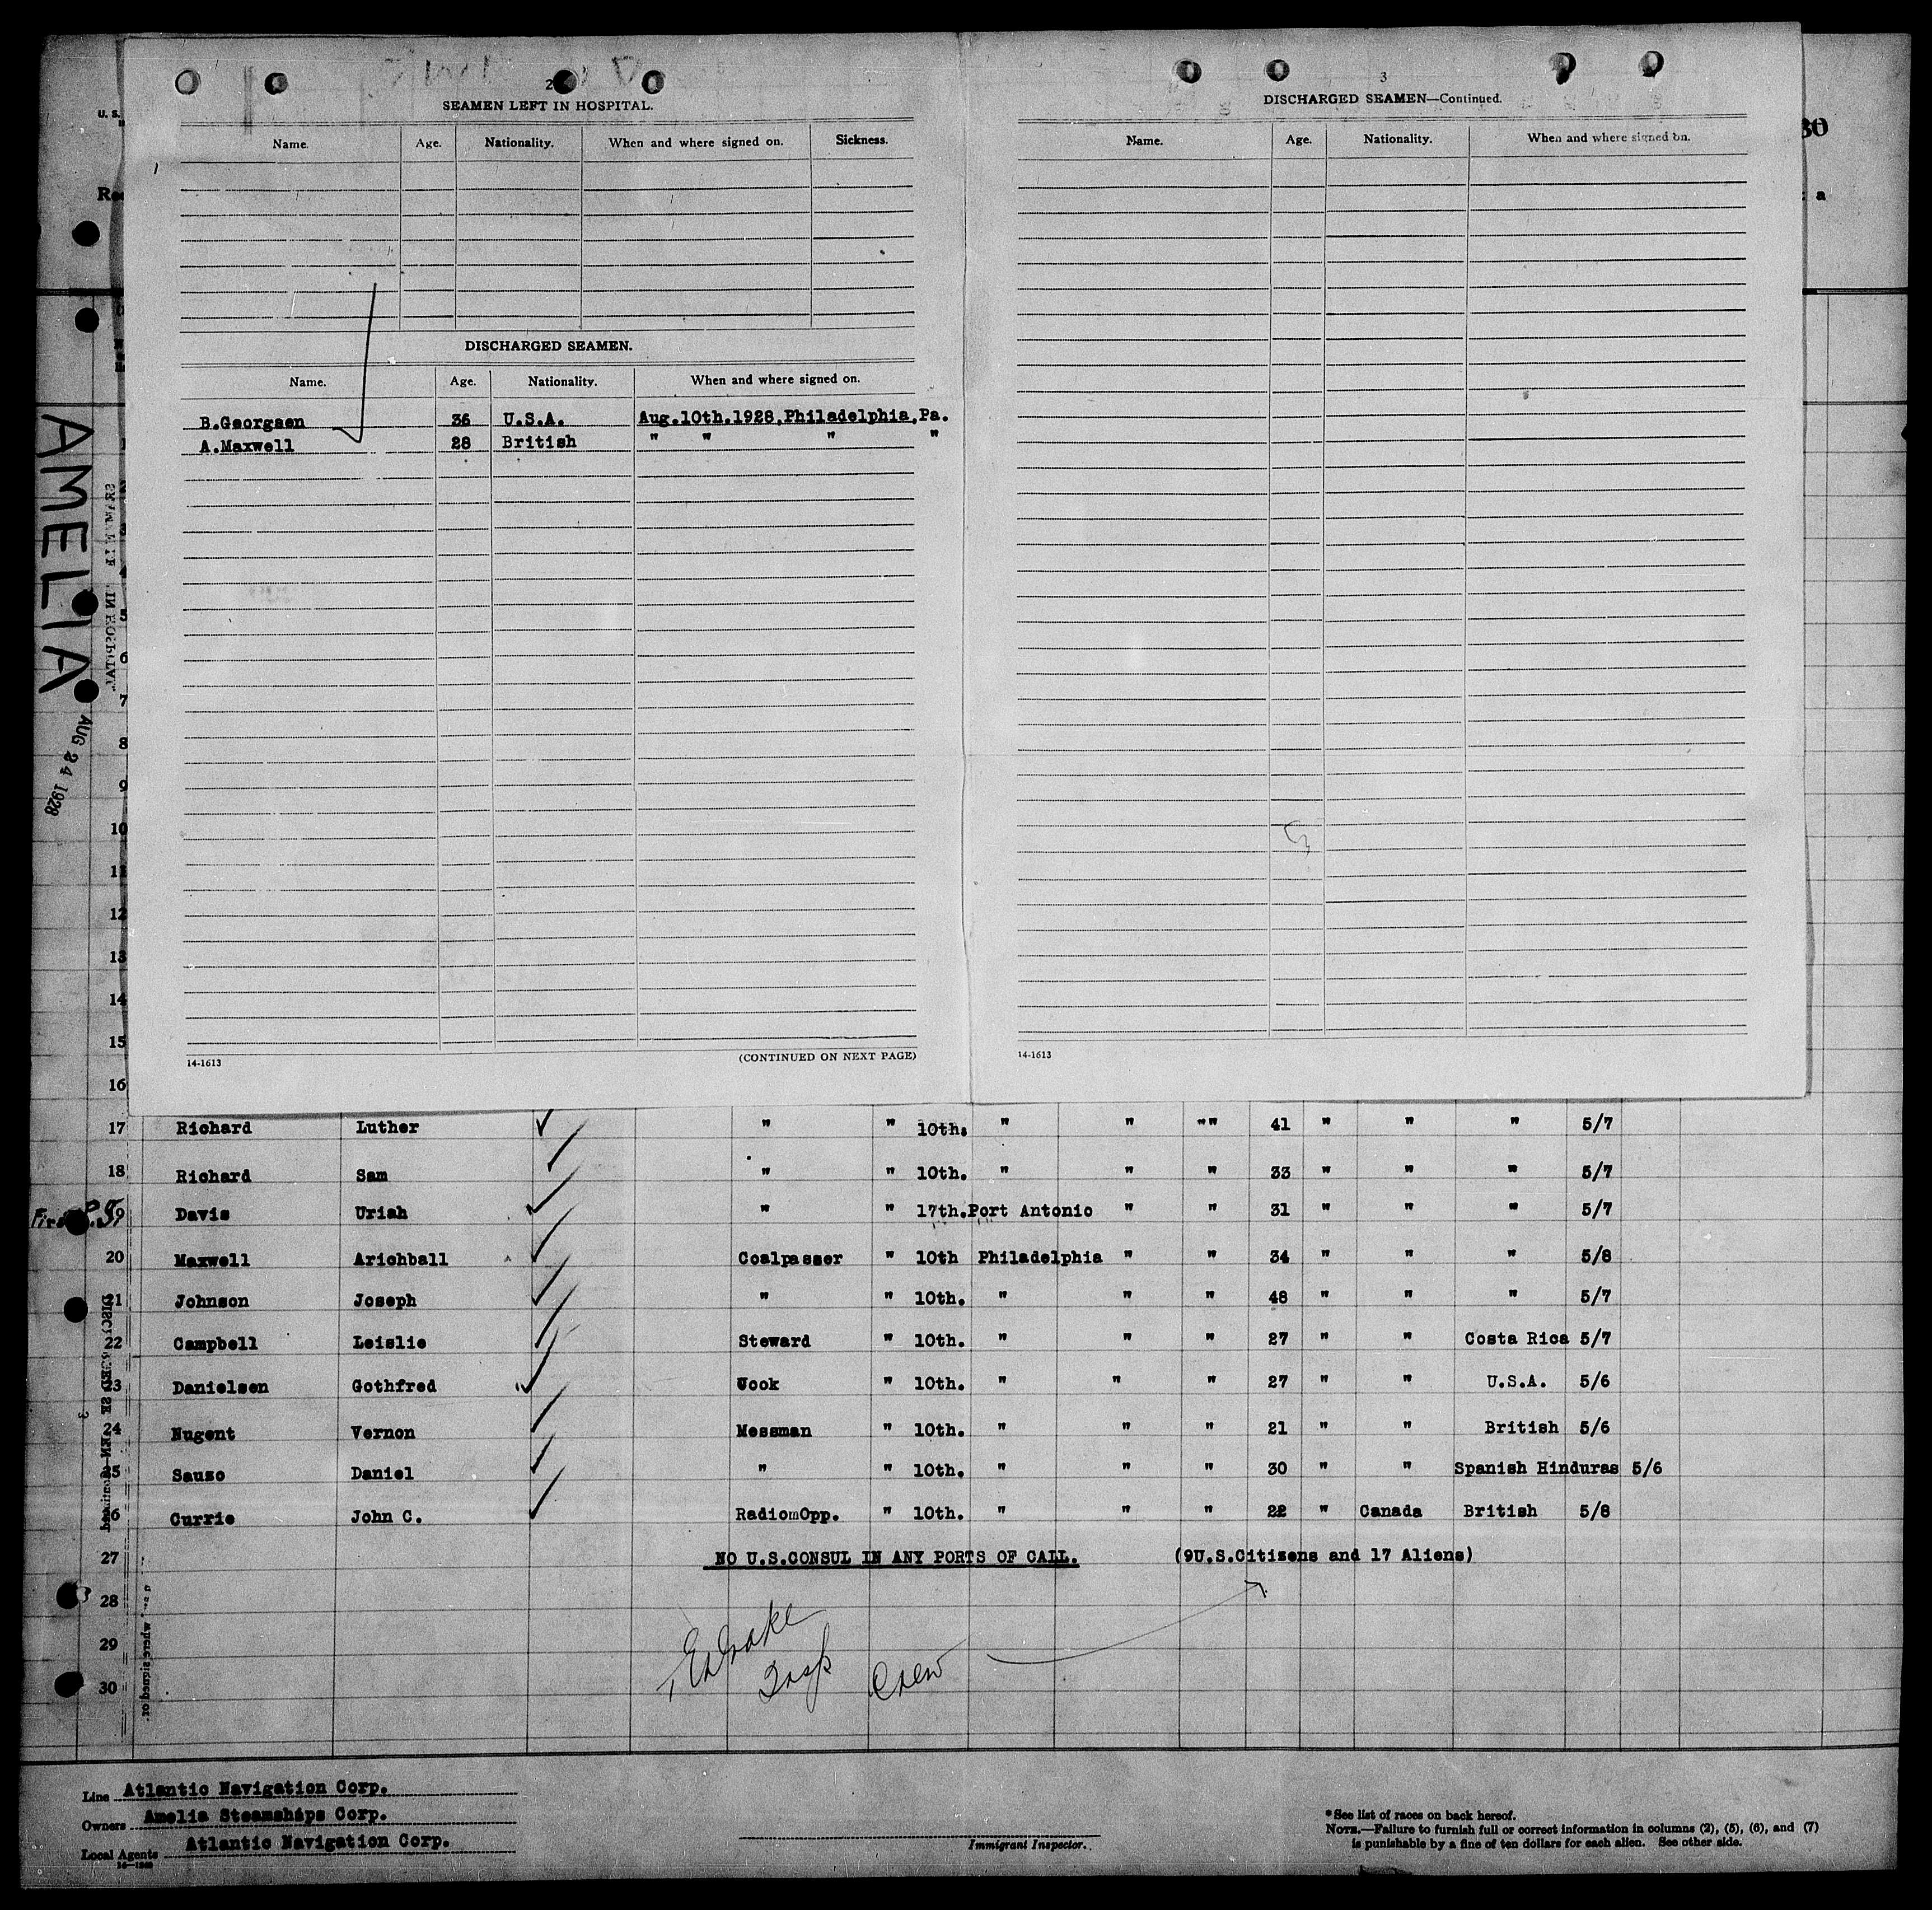 2
SEAMEN LEFT IN HOSPITAL.
Name. Age. Nationality. When and where signed on. Sickness.
DISCHARGED SEAMEN.
Name. Age. Nationality. When and where signed on.
B.Georgsen 36 U.S.A. Aug.10th.1928,Philadelphia,Pa.
A.Maxwell 28 British " " " "
14-1613 (CONTINUED ON NEXT PAGE)
3
DISCHARGED SEAMEN—Continued.
Name. Age. Nationality. When and where signed on.
14-1613
U. S.
30
a
AMELIA
AUG 24 1928
1
3
4
5
6
7
8
9
10
11
12
13
14
15
16
17 Richard Luther " " 10th. " " "" 41 " " " 5/7
18 Richard Sam " " 10th. " " " 33 " " " 5/7
First P.S. 19 Davis Uriah " " 17th.Port Antonio " " 31 " " " 5/7
20 Maxwell Arichball Coalpasser " 10th Philadelphia " " 34 " " " 5/8
21 Johnson Joseph " " 10th. " " " 48 " " " 5/7
22 Campbell Leislie Steward " 10th. " " " 27 " " Costa Rica 5/7
23 Danielsen Gothfred Cook " 10th. " " " 27 " " U.S.A. 5/6
24 Nugent Vernon Messman " 10th. " " " 21 " " British 5/6
25 Sauzo Daniel " " 10th. " " " 30 " " Spanish Hinduras 5/6
26 Currie John C. RadiomOpp. " 10th. " " " 22 " Canada British 5/8
27 NO U.S.CONSUL IN ANY PORTS OF CALL. (9U.S.Citizens and 17 Aliens)
28
29
30
Drake
Insp Crew
Line Atlantic Navigation Corp.
Owners Amelia Steamships Corp.
Local Agents Atlantic Navigation Corp.
Immigrant Inspector.
*See list of races on back hereof.
NOTE.—Failure to furnish full or correct information in columns (2), (5), (6), and (7)
is punishable by a fine of ten dollars for each alien. See other side.